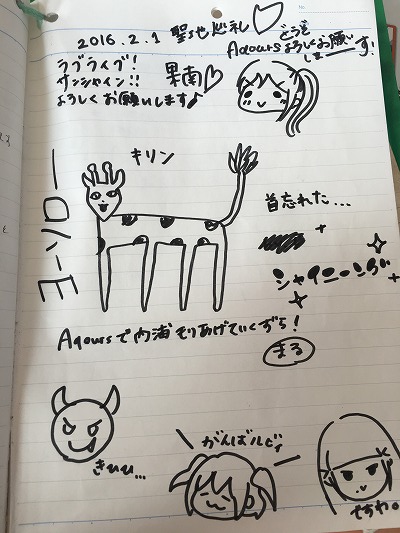 2016.2.1 聖地巡礼♡
どうぞ
Aqoursよろしくお願い
しまーす!
ラブライブ!
サンシャイン!!
よろしくお願いします♪
果南♡
キリン
ヨーハロー
首忘れた…
シャイニーング
Aqoursで内浦もりあげていくずら!
まる
きひひ…
がんばルビィ
ですわ。